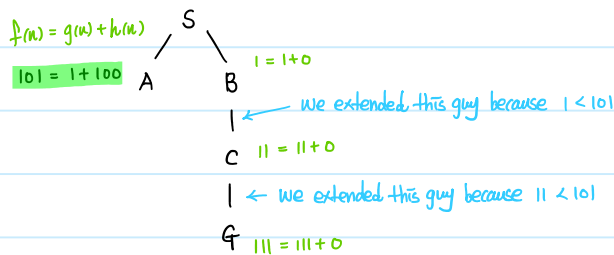 S
f(n) = g(n) + h(n)
1 = 1+0
101 = 1 + 100
A
B
we extended this guy because 1 < 101
C
11 = 11 + 0
we extended this guy because 11 < 101
G
111 = 111 + 0